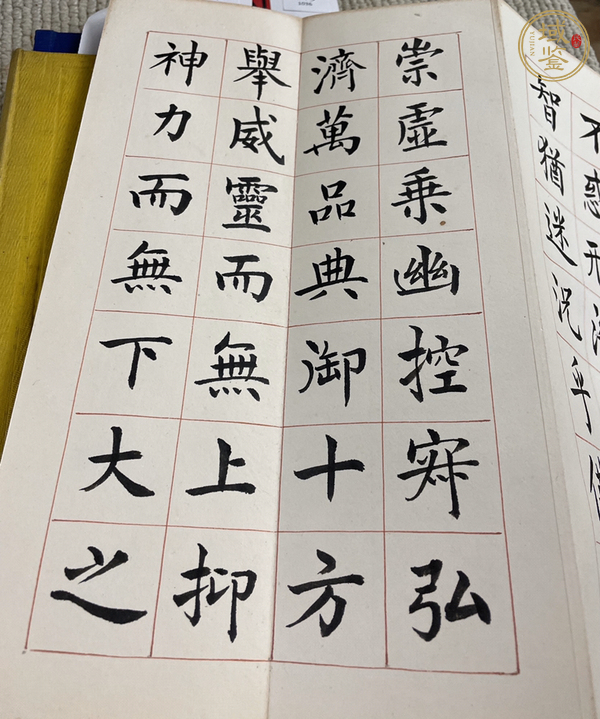 不惑形
智猶迷況乎
崇虛乘幽控寂弘
濟萬品典御十方
舉威靈而無上抑
神力而無下大之